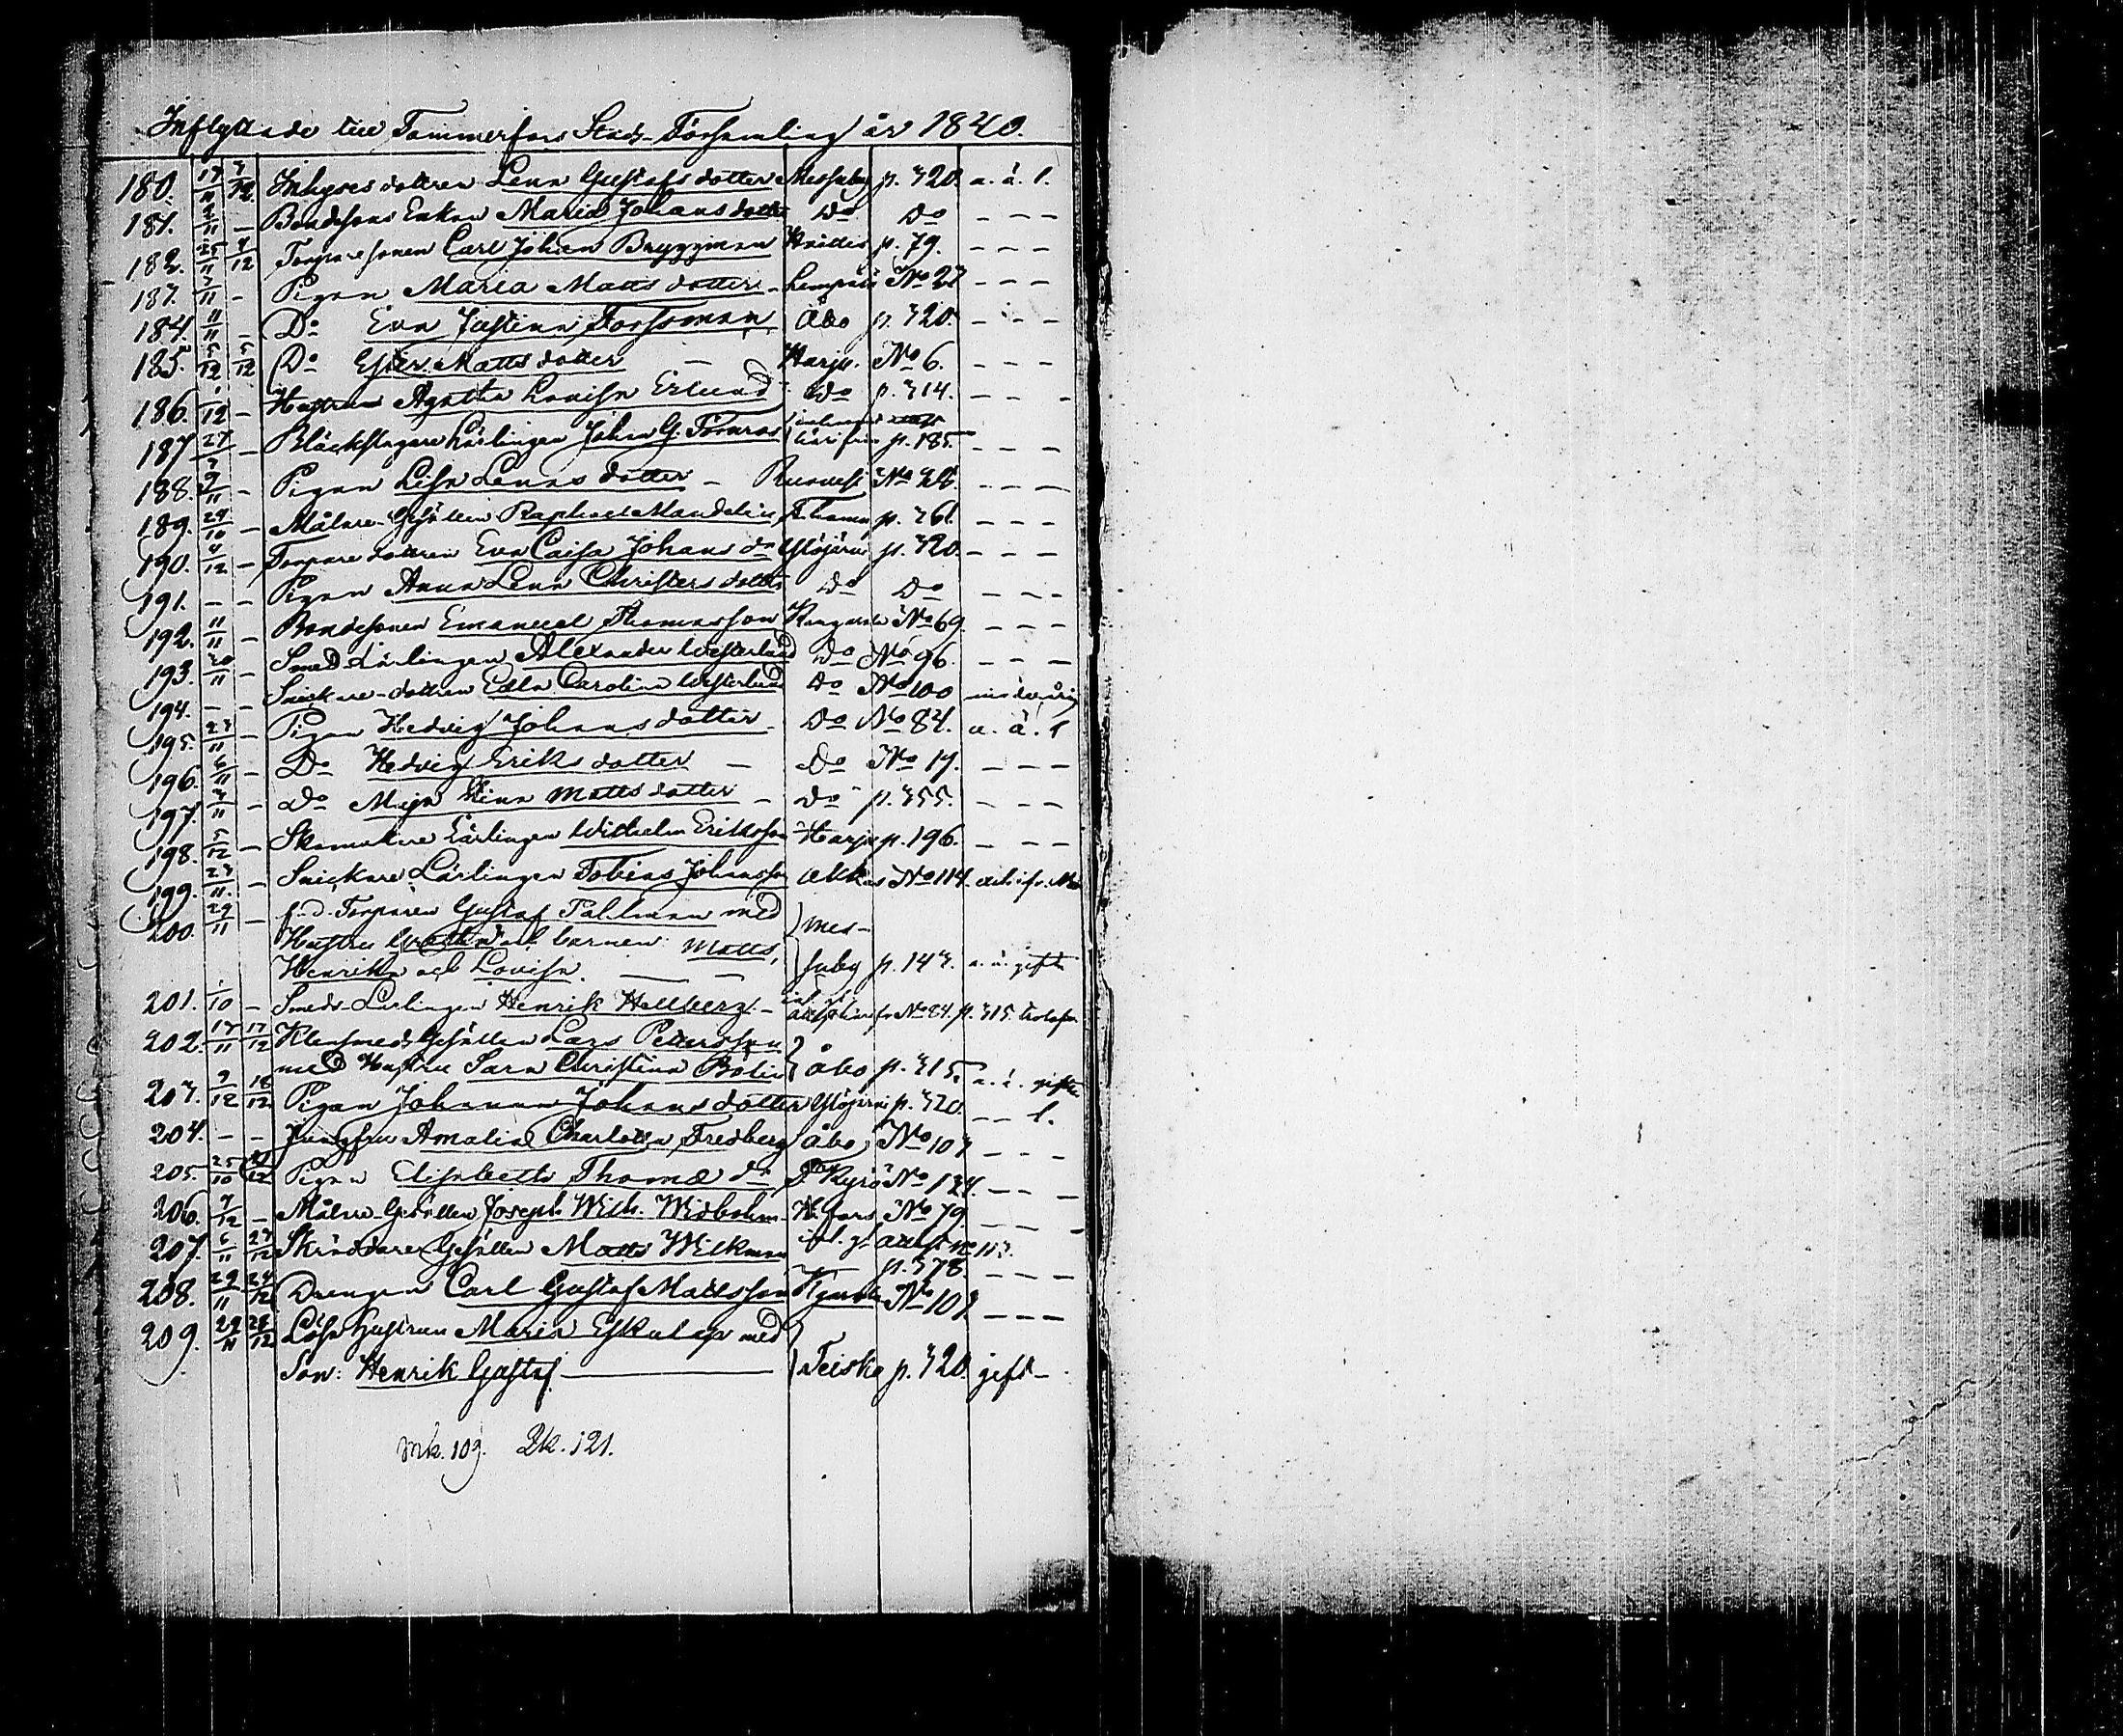 Inflyttade till Tammerfors Stads-Församling år 1840.
180. 17/11 3/12. Inhyses dottren Lena Gustafs dotter Messuby p. 320. a. ä. l.
181. 2/11 — Bondesons Enkan Maria Johans dotter Do Do — — —
182. 25/11 4/12 Torparesonen Carl Johan Bryggman p. 79. — — —
183. 3/11 - Pigan Maria Matts dotter - Lempälä No 23 — — —
184. 11/11 - Do Eva Justina Forssman Åbo p. 320. — — —
185. 5/12 5/12 Do Ester Matts dotter — Harju. No 6. — — —
186. 1/12 - Hustrun Agatha Lovisa Erlund Do p. 314. — — -
187 27/ - Bläckslagare Lärlingen Johan G. Törnroos härifrån p. 185. — — —
188. 9/11 - Pigan Lisa Lenas dotter — Ruovesi No 28. — — —
189. 29/10 - Målare Gesällen Raphael Mandelin p. 361. — — —
190. 4/12 - Torpare dottren Eva Caisa Johans dr Ylöjärvi p. 320. — — —
191. — — Pigan Anna Lena Christers dotter Do Do — — —
192. 11/11 - Bondesonen Emanuel Thomasson Kangasala No 69. — — —
193. 20/11 - Smeds Lärlingen Alexander Westerlund Do No 96. — — —
194. — — Snickare-dottren Edla Carolina Westerlund Do No 100 minderårig
195. 23/11 - Pigan Hedvig Johans dotter - Do No 84. a. ä. l
196. 6/11 - Do Hedvig Eriks dotter — Do No 17. — — —
197. 3/11 - Do Maja Stina Matts dotter — Do p. 355. — — —
198. 5/12 - Skomakare Lärlingen Wilhelm Eriksson Harju p. 196. — — —
199. 23/11. - Snickare Lärlingen Tobias Johansson Akkas No 114.
200. 29/11 - f. d. Torparen Gustaf Pålman med } Mes-
Hustru Gretha och barnen: Matts,
Henrika och Lovisa. — — suby p. 143. a. ä. gifta
201. 1/10 - Smeds-Lärlingen Henrik Hellberg. - No 84. p. 315.
202. 17/11 17/12 Klensmeds Gesällen Lars Pettersson }
med Hustru Sara Christina Bolin Åbo p. 315. a. ä. gifta
203. 9/12 18/12 Pigan Johanna Johans dotter Ylöjärvi p. 320. — — l.
204. - - Jungfru Amalia Charlotta Fredberg Åbo No 103 — — —
205. 25/10 /12 Pigan Elisabeth Thomæ dr Kyrö No 124. — — —
206. 7/12 - Målare Gesällen Joseph Wilh. Widbohm H.fors No 79 — — -
207. 6/11 23/12 Skräddare Gesällen Matts Wilkman No 113.
p. 378. — — —
208. 29/11 24/12 Drengen Carl Gustaf Mattsson No 103 — — —
209. 29/11 28/12 Lösa Hustrun Maria Eskulap med }
Son: Henrik Gustaf. — Teisko p. 320. gift-
Mk. 109. Qk. 121.